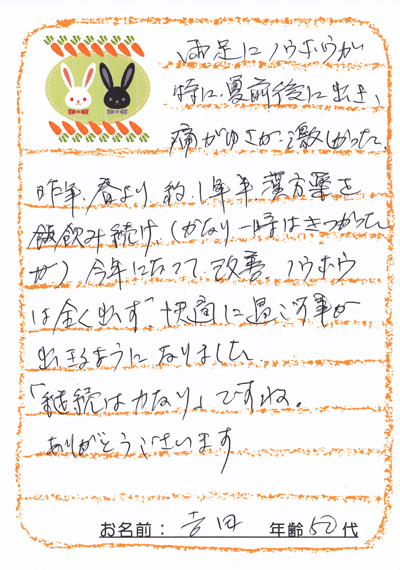 両足にノウホウが
特に、夏前後に出き、
痛がゆさが、激しかった。
昨年、春より、約、1年半、漢方薬を
飲み続け、(かなり一時はきつかった
が)今年になって、改善。ノウホウ
は全く出ず、快適に過ごす事が
出きるようになりました
「継続は力なり」ですね。
ありがとうございます
お名前: 吉田 年齢 50代